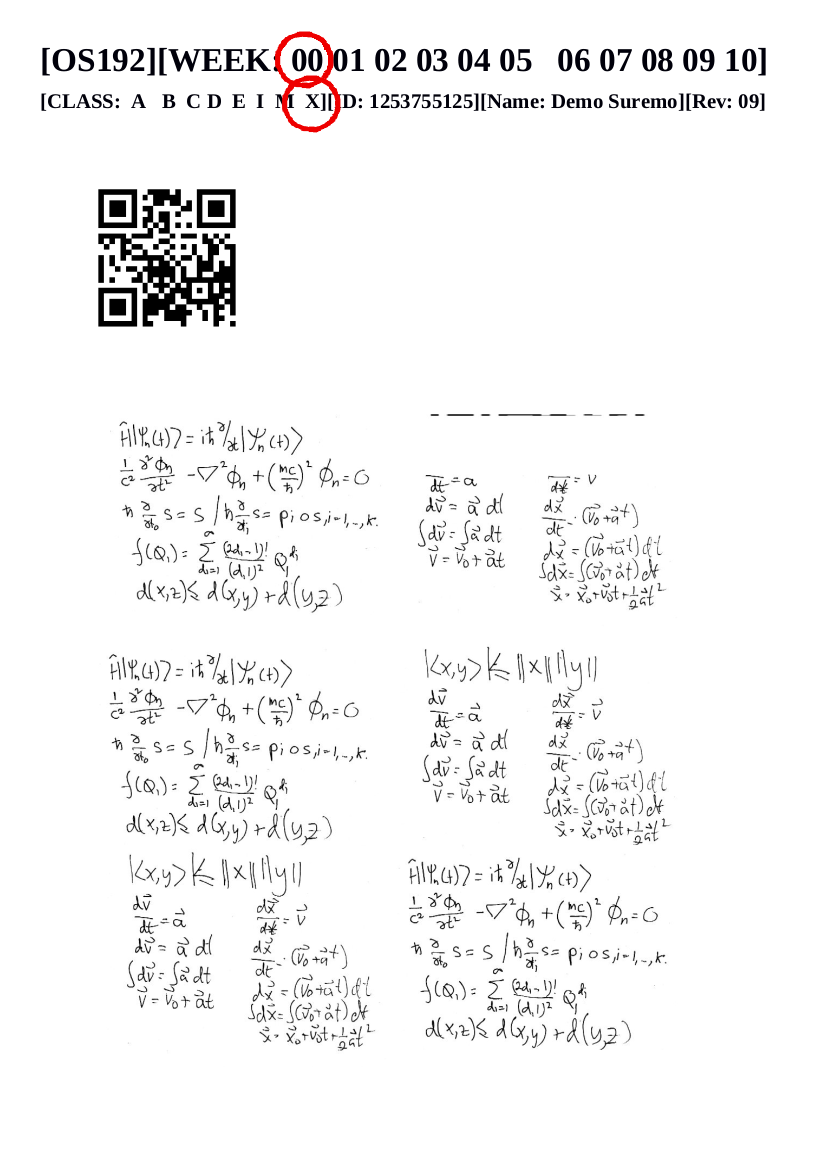 [OS192][WEEK: 00 01 02 03 04 05 06 07 08 09 10]
[CLASS: A B C D E I M X][ID: 1253755125][Name: Demo Suremo][Rev: 09]
Ĥ|Ψₙ(t)⟩ = iħ ∂/∂t |Ψₙ(t)⟩
1/c² ∂²ϕₙ/∂t² - ∇²ϕₙ + (mc/ħ)² ϕₙ = 0
ħ ∂/∂t₀ S = S / ħ ∂/∂tᵢ S = p i o s, i = 1, .., k.
f(Q₁) = ∞ Σ d₁=1 (2d₁-1)!/(d₁!)² Q₁^d₁
d(x,z) ≤ d(x,y) + d(y,z)
dt = a
dv⃗ = a⃗ dt
∫dv⃗ = ∫a⃗ dt
v⃗ = v⃗₀ + a⃗t
dt = v
dx⃗/dt = (v⃗₀ + a⃗t)
dx⃗ = (v⃗₀ + a⃗t) dt
∫dx⃗ = ∫(v⃗₀ + a⃗t) dt
x⃗ = x⃗₀ + v⃗₀t + 1/2 a⃗t²
Ĥ|Ψₙ(t)⟩ = iħ ∂/∂t |Ψₙ(t)⟩
1/c² ∂²ϕₙ/∂t² - ∇²ϕₙ + (mc/ħ)² ϕₙ = 0
ħ ∂/∂t₀ S = S / ħ ∂/∂tᵢ S = p i o s, i = 1, .., k.
f(Q₁) = ∞ Σ d₁=1 (2d₁-1)!/(d₁!)² Q₁^d₁
d(x,z) ≤ d(x,y) + d(y,z)
|<x,y>| ≤ ||x|| ||y||
dv⃗/dt = a⃗
dv⃗ = a⃗ dt
∫dv⃗ = ∫a⃗ dt
v⃗ = v⃗₀ + a⃗t
dx⃗/dt = v⃗
dx⃗/dt = (v⃗₀ + a⃗t)
dx⃗ = (v⃗₀ + a⃗t) dt
∫dx⃗ = ∫(v⃗₀ + a⃗t) dt
x⃗ = x⃗₀ + v⃗₀t + 1/2 a⃗t²
|<x,y>| ≤ ||x|| ||y||
dv⃗/dt = a⃗
dv⃗ = a⃗ dt
∫dv⃗ = ∫a⃗ dt
v⃗ = v⃗₀ + a⃗t
dx⃗/dt = v⃗
dx⃗/dt = (v⃗₀ + a⃗t)
dx⃗ = (v⃗₀ + a⃗t) dt
∫dx⃗ = ∫(v⃗₀ + a⃗t) dt
x⃗ = x⃗₀ + v⃗₀t + 1/2 a⃗t²
Ĥ|Ψₙ(t)⟩ = iħ ∂/∂t |Ψₙ(t)⟩
1/c² ∂²ϕₙ/∂t² - ∇²ϕₙ + (mc/ħ)² ϕₙ = 0
ħ ∂/∂t₀ S = S / ħ ∂/∂tᵢ S = p i o s, i = 1, .., k.
f(Q₁) = ∞ Σ d₁=1 (2d₁-1)!/(d₁!)² Q₁^d₁
d(x,z) ≤ d(x,y) + d(y,z)